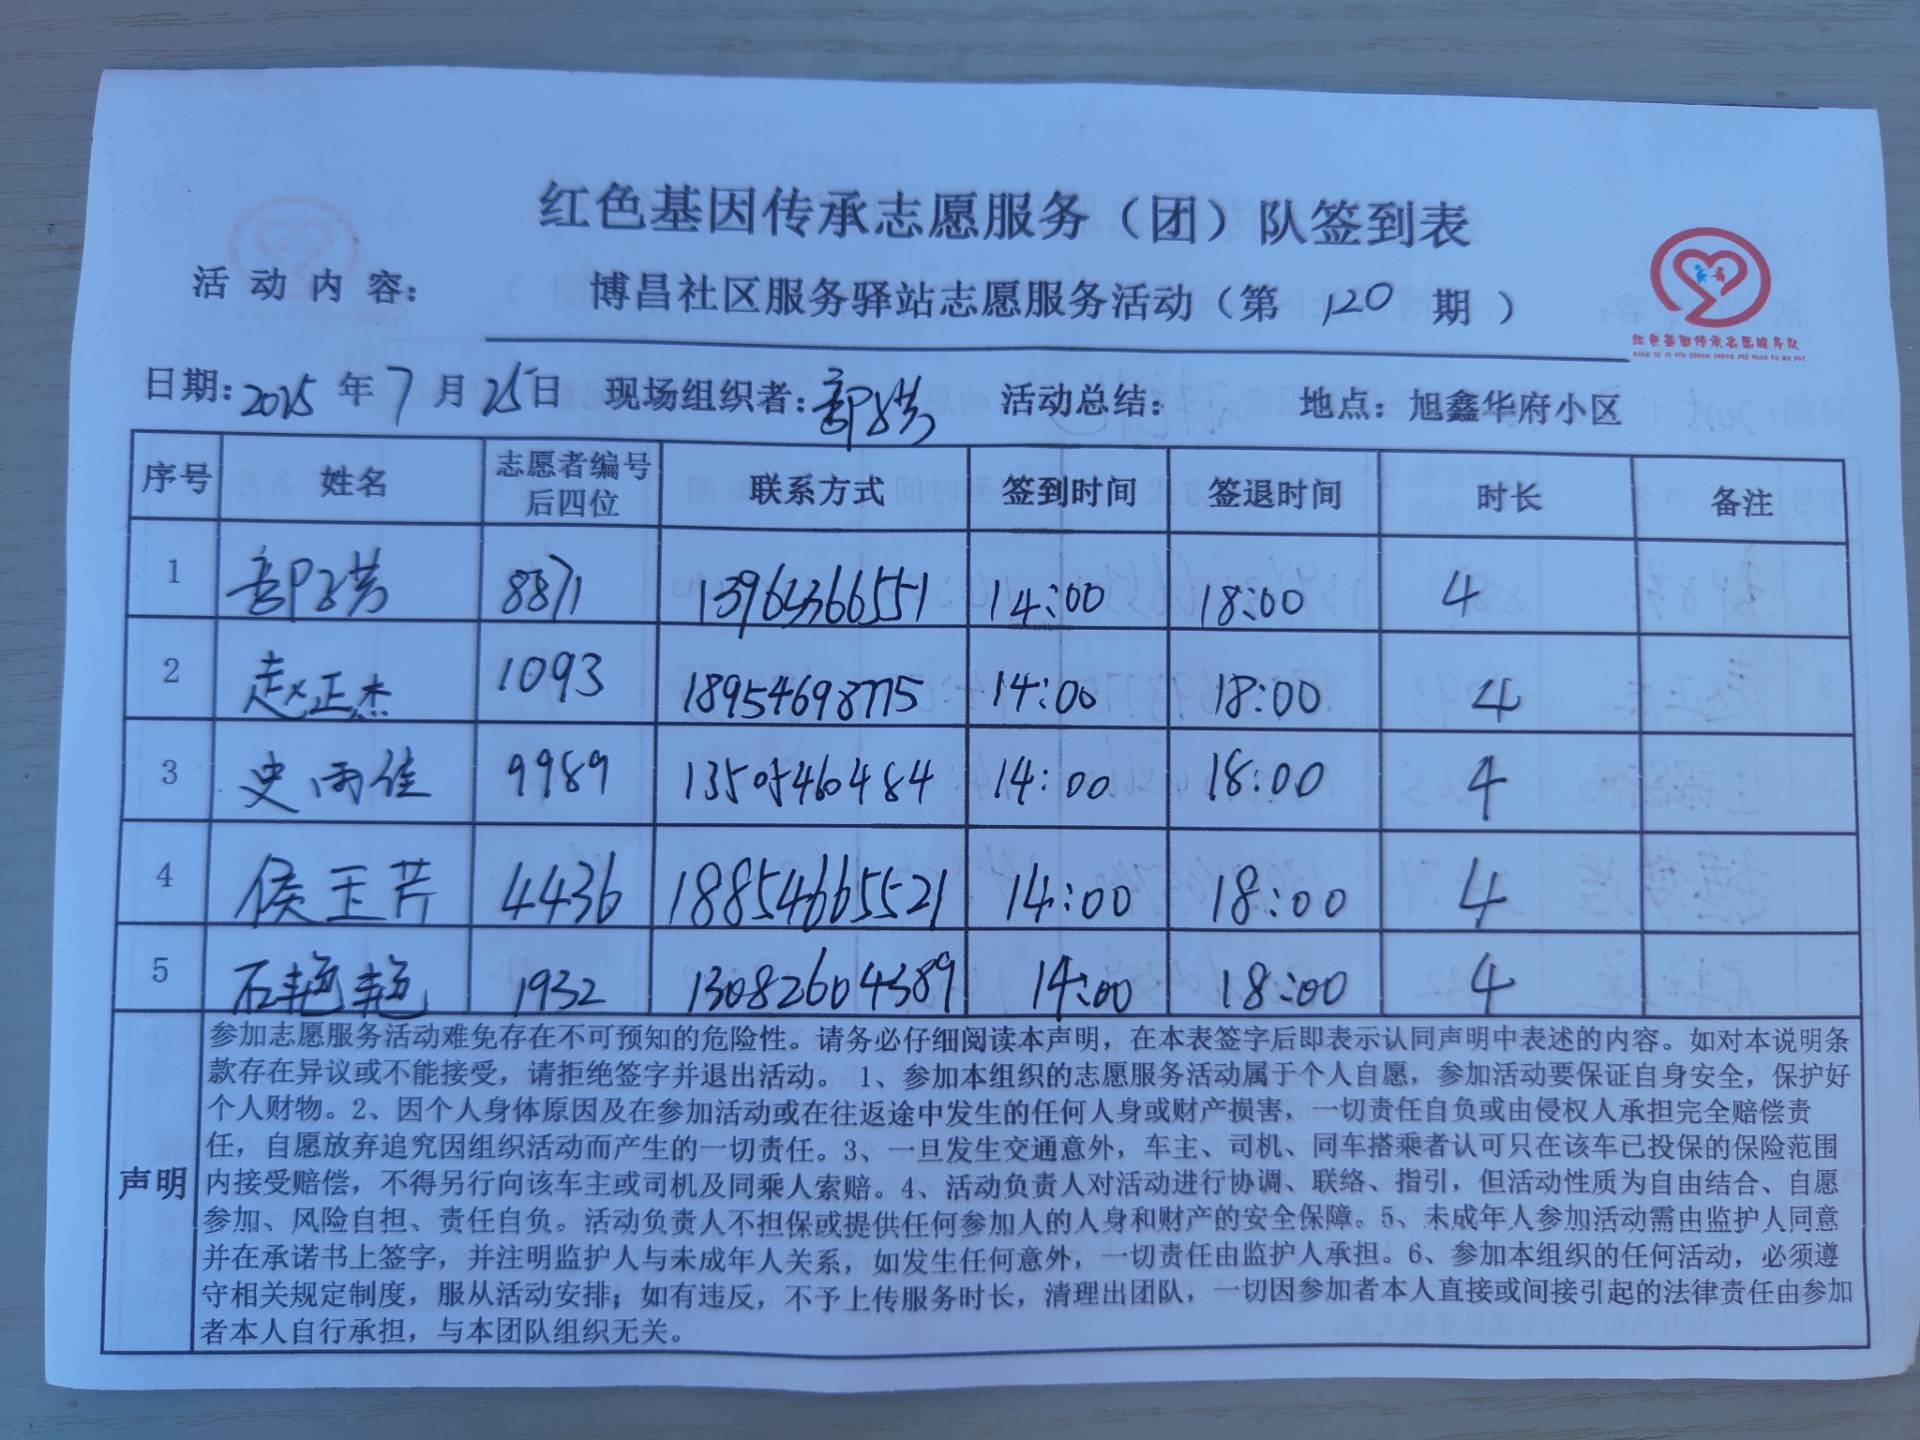 红色基因传承志愿服务（团）队签到表
活动内容： 博昌社区服务驿站志愿服务活动（第 120 期）
红色基因传承志愿服务队
日期：2025年7月25日 现场组织者： 活动总结： 地点：旭鑫华府小区
序号 姓名 志愿者编号后四位 联系方式 签到时间 签退时间 时长 备注
1 8871 13963366551 14:00 18:00 4
2 赵正杰 1093 18954698775 14:00 18:00 4
3 史雨佳 9989 13505460484 14:00 18:00 4
4 侯玉芹 4436 18854665521 14:00 18:00 4
5 石艳艳 1932 13082604389 14:00 18:00 4
声明
参加志愿服务活动难免存在不可预知的危险性。请务必仔细阅读本声明，在本表签字后即表示认同声明中表述的内容。如对本说明条
款存在异议或不能接受，请拒绝签字并退出活动。1、参加本组织的志愿服务活动属于个人自愿，参加活动要保证自身安全，保护好
个人财物。2、因个人身体原因及在参加活动或在往返途中发生的任何人身或财产损害，一切责任自负或由侵权人承担完全赔偿责
任，自愿放弃追究因组织活动而产生的一切责任。3、一旦发生交通意外，车主、司机、同车搭乘者认可只在该车已投保的保险范围
内接受赔偿，不得另行向该车主或司机及同乘人索赔。4、活动负责人对活动进行协调、联络、指引，但活动性质为自由结合、自愿
参加、风险自担、责任自负。活动负责人不担保或提供任何参加人的人身和财产的安全保障。5、未成年人参加活动需由监护人同意
并在承诺书上签字，并注明监护人与未成年人关系，如发生任何意外，一切责任由监护人承担。6、参加本组织的任何活动，必须遵
守相关规定制度，服从活动安排；如有违反，不予上传服务时长，清理出团队，一切因参加者本人直接或间接引起的法律责任由参加
者本人自行承担，与本团队组织无关。